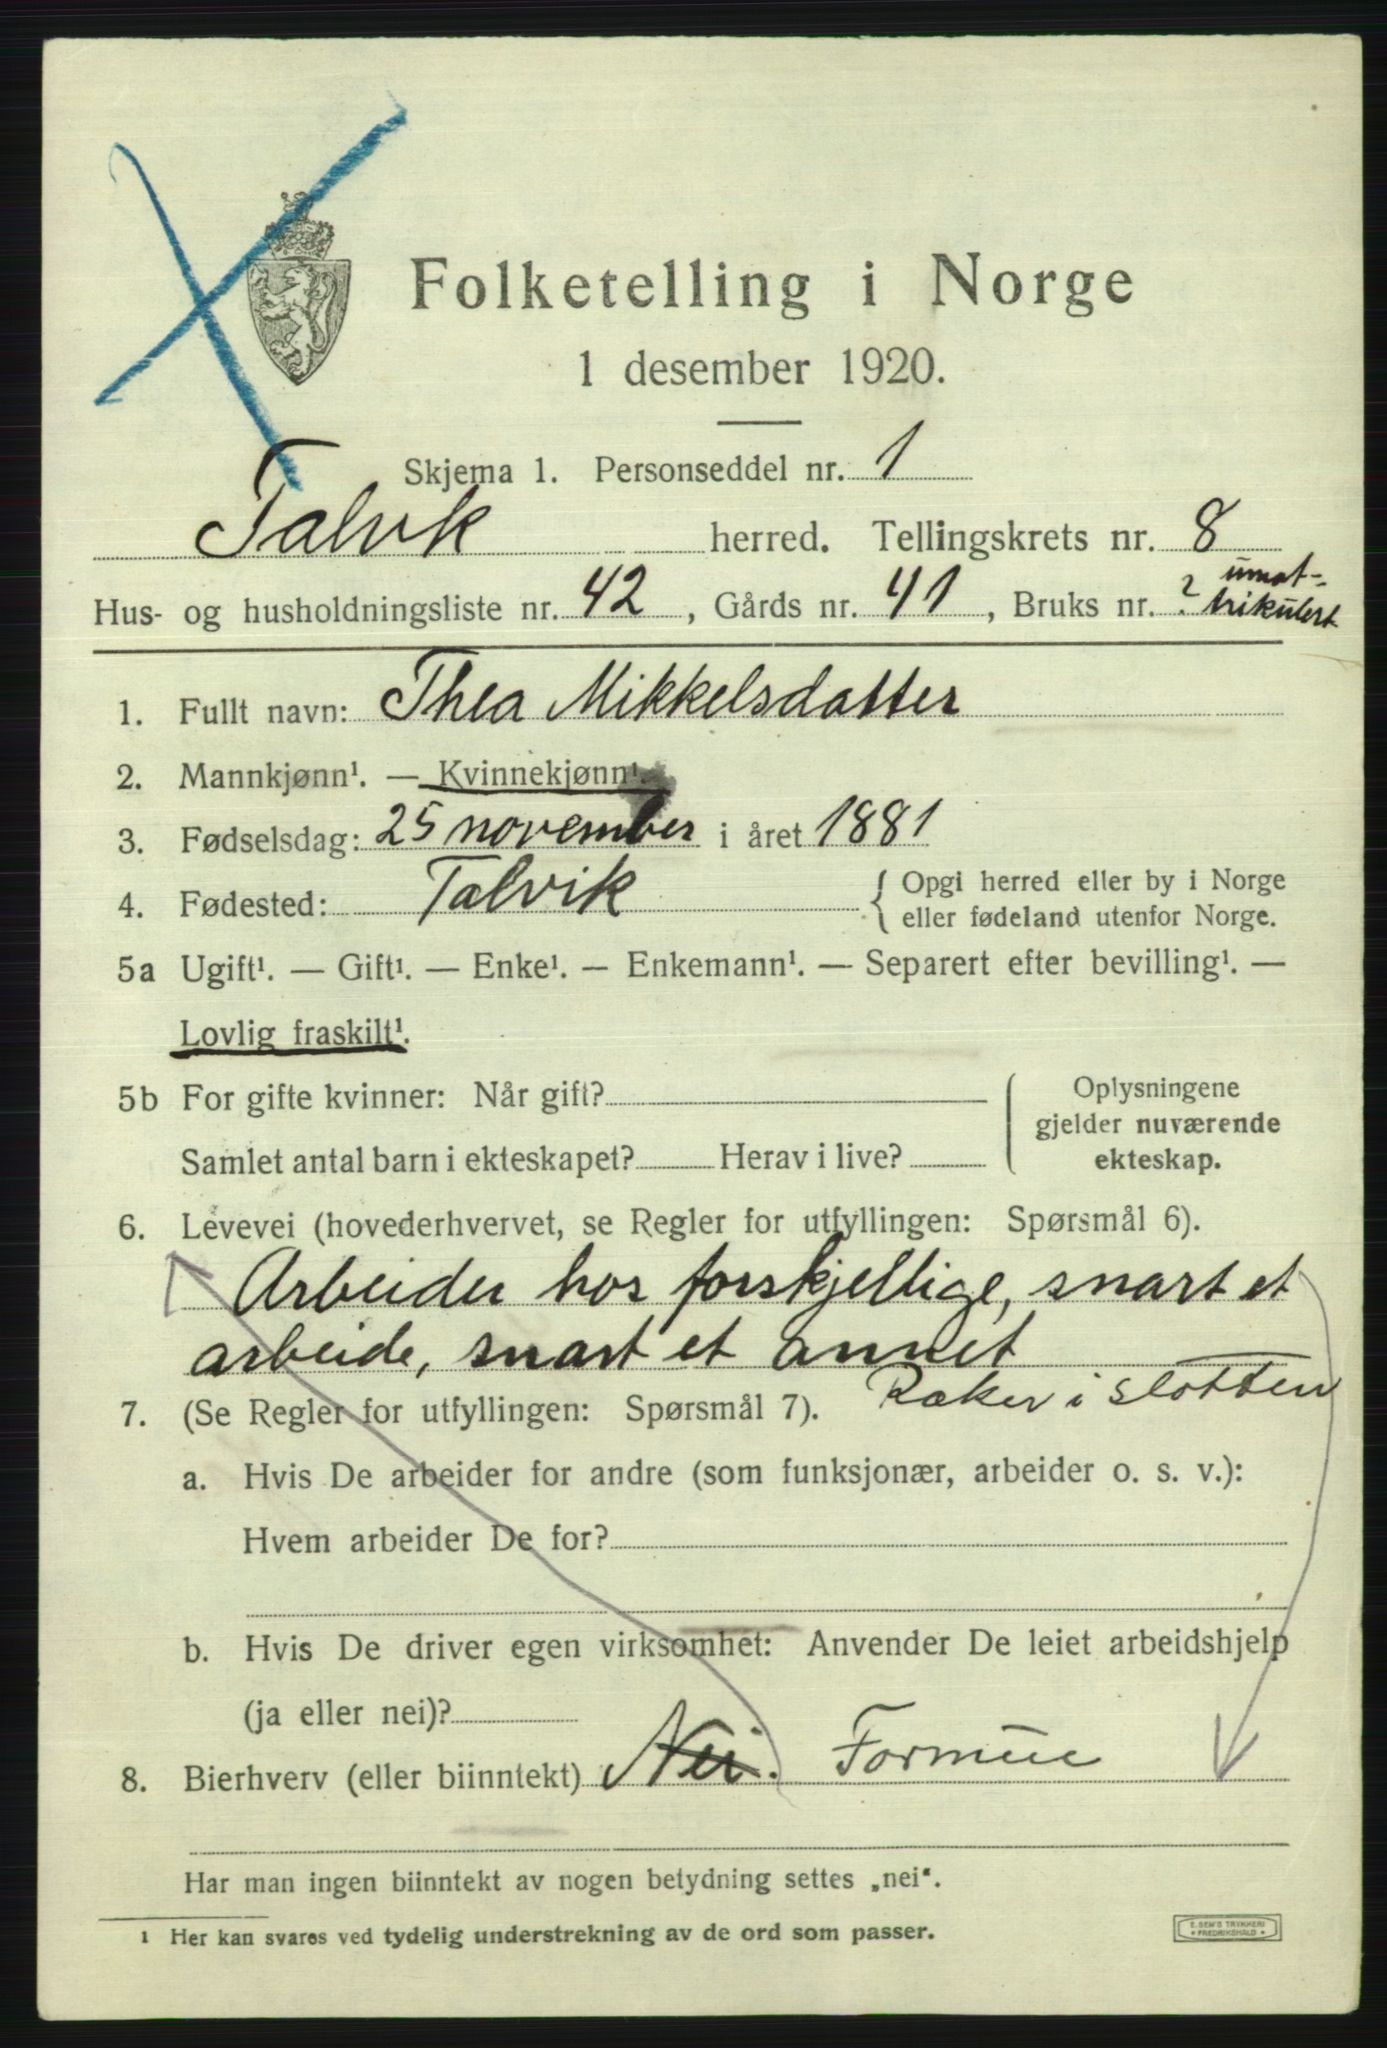 Folketelling i Norge
1 desember 1920.
Skjema 1. Personseddel nr. 1
Talvik herred. Tellingskrets nr. 8
Hus- og husholdningsliste nr. 42, Gårds nr. 41, Bruks nr. ? umat-
trikulert
1. Fullt navn: Thea Mikkelsdatter
2. Mannkjønn¹. — Kvinnekjønn¹.
3. Fødselsdag: 25 november i året 1881
4. Fødested: Talvik { Opgi herred eller by i Norge
eller fødeland utenfor Norge.
5a Ugift¹. — Gift¹. — Enke¹. — Enkemann¹. — Separert efter bevilling¹. —
Lovlig fraskilt¹.
5b For gifte kvinner: Når gift?
Samlet antal barn i ekteskapet? Herav i live?
Oplysningene
gjelder nuværende
ekteskap.
6. Levevei (hovederhvervet, se Regler for utfyllingen: Spørsmål 6).
Arbeider hos forskjellige, snart et
arbeide, snart et annet
Raker i slotten
7. (Se Regler for utfyllingen: Spørsmål 7).
a. Hvis De arbeider for andre (som funksjonær, arbeider o. s. v.):
Hvem arbeider De for?
b. Hvis De driver egen virksomhet: Anvender De leiet arbeidshjelp
(ja eller nei)?
8. Bierhverv (eller biinntekt) Nei. Formue
Har man ingen biinntekt av nogen betydning settes „nei“.
¹ Her kan svares ved tydelig understrekning av de ord som passer.
E. SEM'S TRYKKERI
* FREDRIKSHALD *